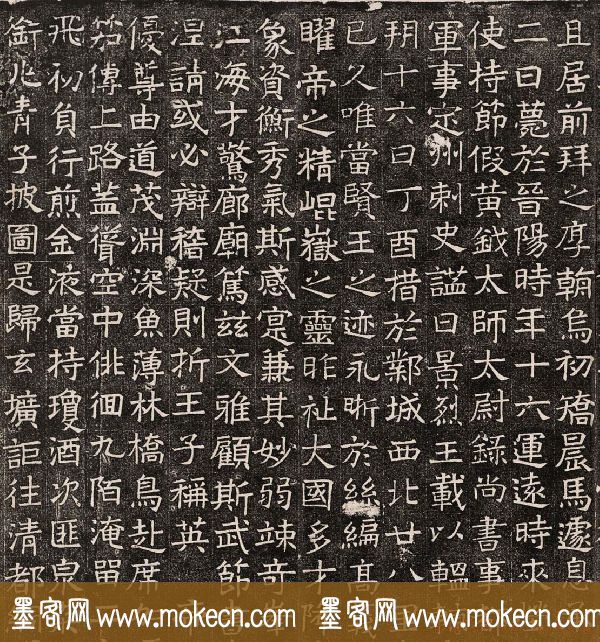 且居前拜之序翰烏初矯晨馬遽息
二日薨於晉陽時年十六運遠時來
使持節假黃鉞太師太尉錄尚書事
軍事定州刺史謚曰景烈王載以轀
玥十六日丁酉措於鄴城西北廿八
已久唯當賢王之迹永晰於絲編高
曜帝之精崐嶽之靈昨祉大國多才
象資衡秀氣斯感寔兼其妙弱竦奇
江海才驚廊廟篤兹文雅顧斯武節
涅請或必辯稽疑則折王子稱英
優尊由道茂淵深魚薄林橋鳥赴席
笳傳上路蓋聳空中俳徊九陌淹單
飛初負行煎金液當持瓊酒次匪泉
銜兆青子披圖是歸玄壙詎往清都
墨客网 www.mokecn.com 墨客网 www.mokecn.com